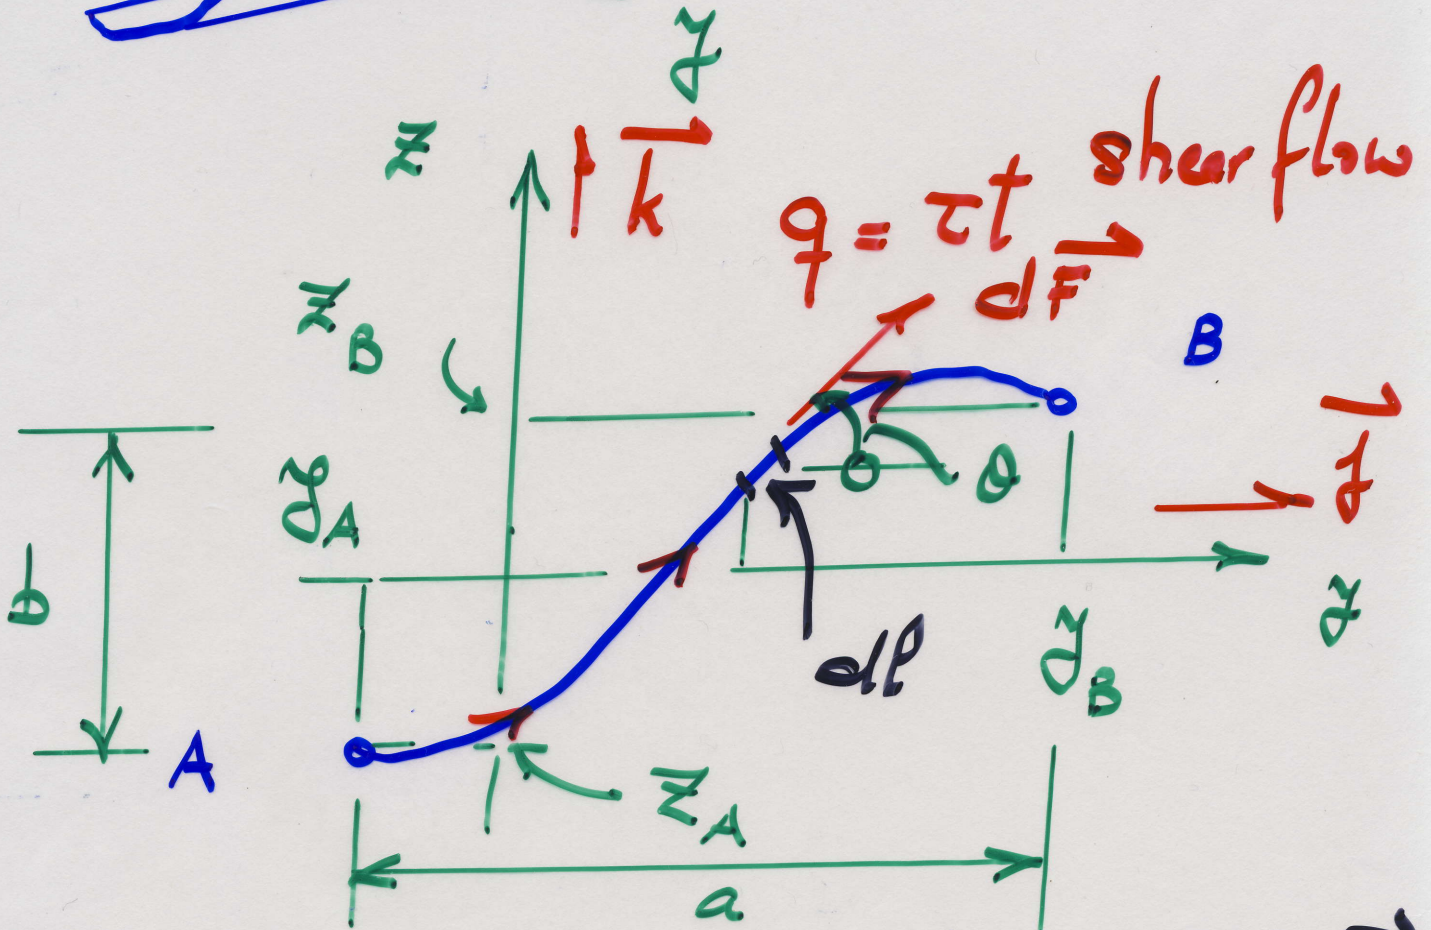 y
z
k
shear flow
q = τt
dF
z_B
B
j
y_A
θ
b
y
dl
y_B
A
z_A
a